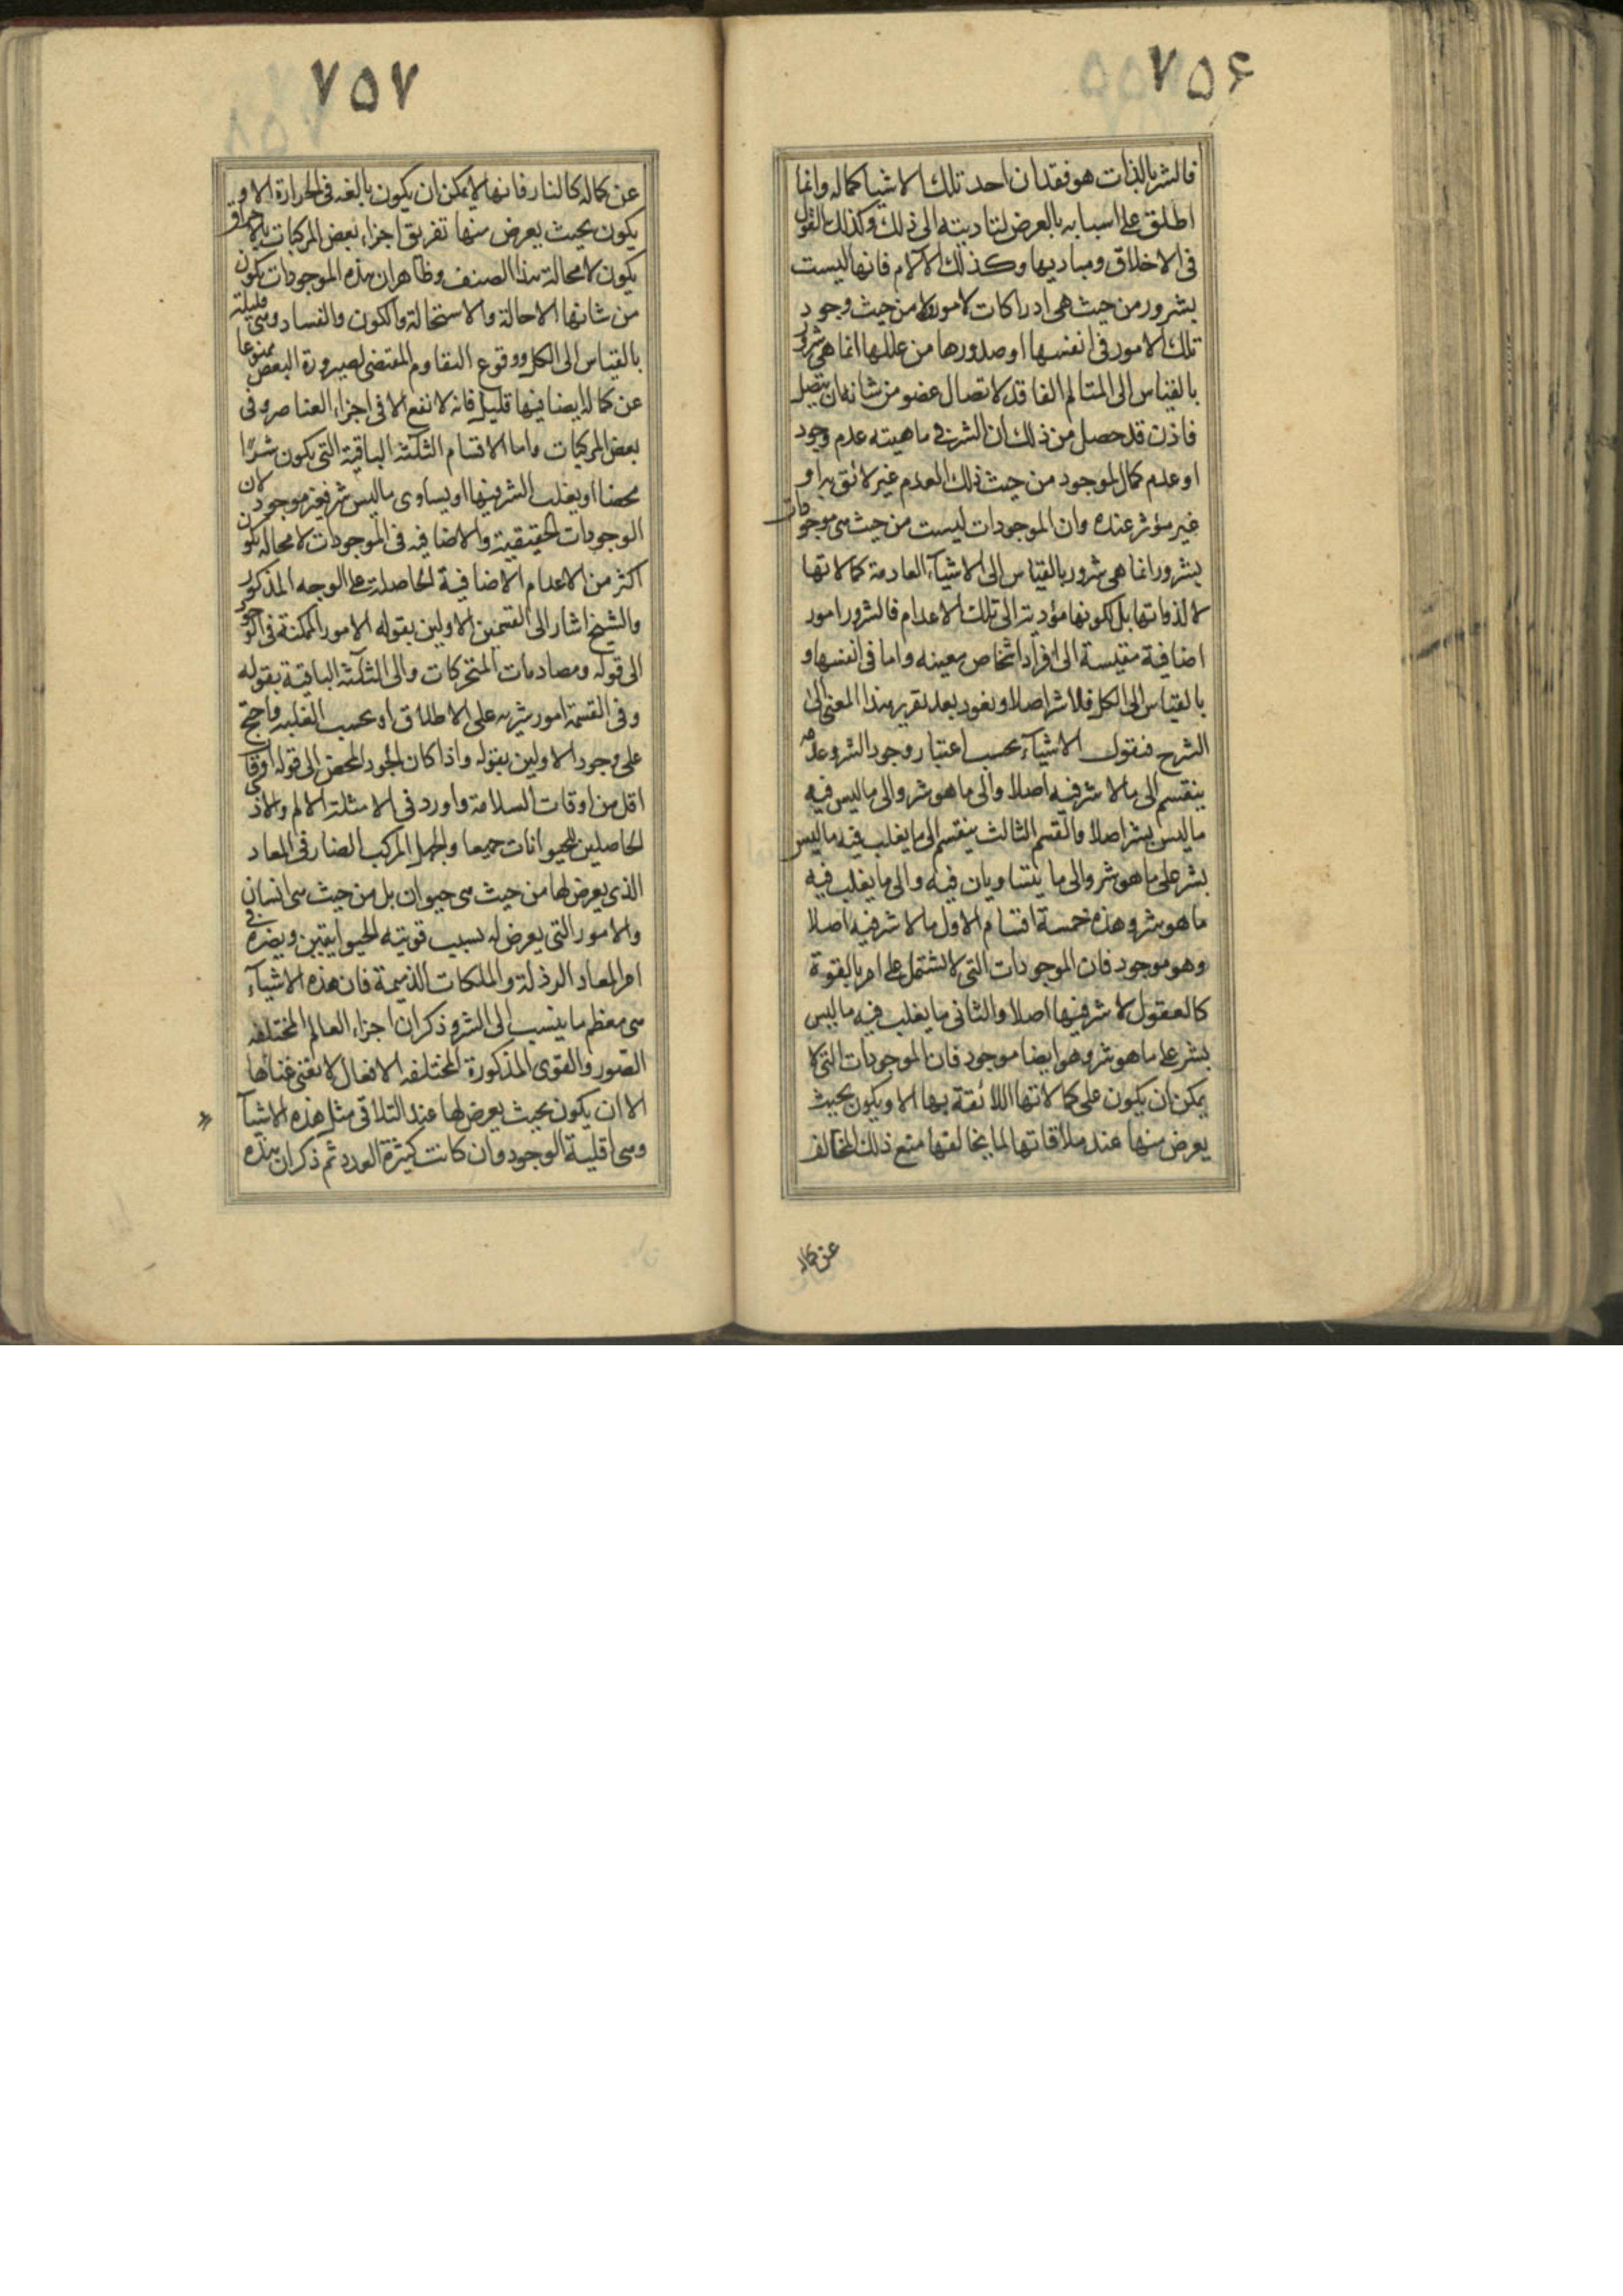 ۷۵۶
فالشر بالذات هو فقدان احد تلك الاشیا کماله وانما
اطلق علی اسبابه بالعرض لتادیته الی ذلک وکذلک القول
فی الاخلاق ومبادیها وکذلک الآلام فانها لیست
بشرور من حیث هی ادراکات لامور ولا من حیث وجود
تلک الامور فی انفسها او صدورها من عللها انما هی شرور
بالقیاس الی المتالم الفاقد لاتصال عضو من شانه ان یتصل
فاذن قد حصل من ذلک ان الشر فی ماهیته عدم وجود
او عدم کمال لموجود من حیث ذلک العدم غیر لائق به او
غیر مؤثر عنده وان الموجودات لیست من حیث هی موجودات
بشرور انما هی شرور بالقیاس الی الاشیآء العادمة کمالاتها
لا لذواتها بل لکونها مؤدیة الی تلک الاعدام فالشرور امور
اضافیة مقیسة الی افراد اشخاص معینه واما فی انفسها و
بالقیاس الی الکل فلا شر اصلا ونعود بعد تقریر هذا المعنی الی
الشرح فنقول الاشیآء بحسب اعتبار وجود الشر وعدمه
ینقسم الی ما لا شر فیه اصلا والی ما هو شر والی ما لیس فیه
ما لیس بشر اصلا والقسم الثالث ینقسم الی ما یغلب فیه ما لیس
بشر علی ما هو شر والی ما یتساویان فیه والی ما یغلب فیه
ما هو شر وهذه خمسة اقسام الاول ما لا شر فیه اصلا
وهو موجود فان الموجودات التی لا یشتمل علی امر بالقوة
کالعقول لا شر فیها اصلا والثانی ما یغلب فیه ما لیس
بشر علی ما هو شر وهو ایضا موجود فان الموجودات التی لا
یمکن ان یکون علی کمالاتها اللائقة بها الا ویکون بحیث
یعرض منها عند ملاقاتها لما یخالفها منع ذلک المخالف
عن کماله
۷۵۷
عن کماله کالنار فانها لا یمکن ان یکون بالغه فی الحرارة الا و
یکون بحیث یعرض منها تفریق اجزاء بعض المرکبات بالاحراق
یکون لا محالة هذا الصنف وظاهر ان هذه الموجودات یکون
من شانها الاحالة والاستحالة والکون والفساد وهی قلیلة
بالقیاس الی الکل ووقوع التقاوم المقتضی لصیرورة البعض ممنوعا
عن کماله ایضا فیها قلیل فانه لا نفع الا فی اجزاء العناصر وفی
بعض المرکبات واما الاقسام الثلثة الباقیة التی یکون شرًا
محضا او یغلب الشر فیها او یساوی ما لیس بشر فغیر موجود لان
الوجودات الحقیقیة والاضافیه فی الموجودات لا محاله یکون
اکثر من الاعدام الاضافیة الحاصلة علی الوجه المذکور
والشیخ اشار الی القسمین الاولین بقوله الامور الممکنة فی الوجود
الی قوله ومصادمات المتحرکات والی الثلثة الباقیة بقوله
وفی القسمة امور شریه علی الاطلاق او بحسب الغلبه واحتج
علی وجود الاولین بقوله واذا کان الجود المحض الی قوله اوقات
اقل من اوقات السلامة واورد فی الامثلة الالم والاذی
الحاصلین للحیوانات جمیعا والجهل المرکب الضار فی المعاد
الذی یعرض لها من حیث هی حیوان بل من حیث هی انسان
والامور التی یعرض له بسبب قوتیه الحیوانیتین ویضره فی
امر المعاد الرذلة والملکات الذمیمة فان هذه الاشیآء
هی معظم ما ینسب الی الشر وذکر ان اجزاء العالم المختلفه
الصور والقوی المذکورة المختلفه الافعال لا تغنی غناها
الا ان یکون بحیث یعرض لها عند التلاقی مثل هذه الاشیآ
وهی اقلیة الوجود وان کانت کثیرة العدد ثم ذکر ان هذه